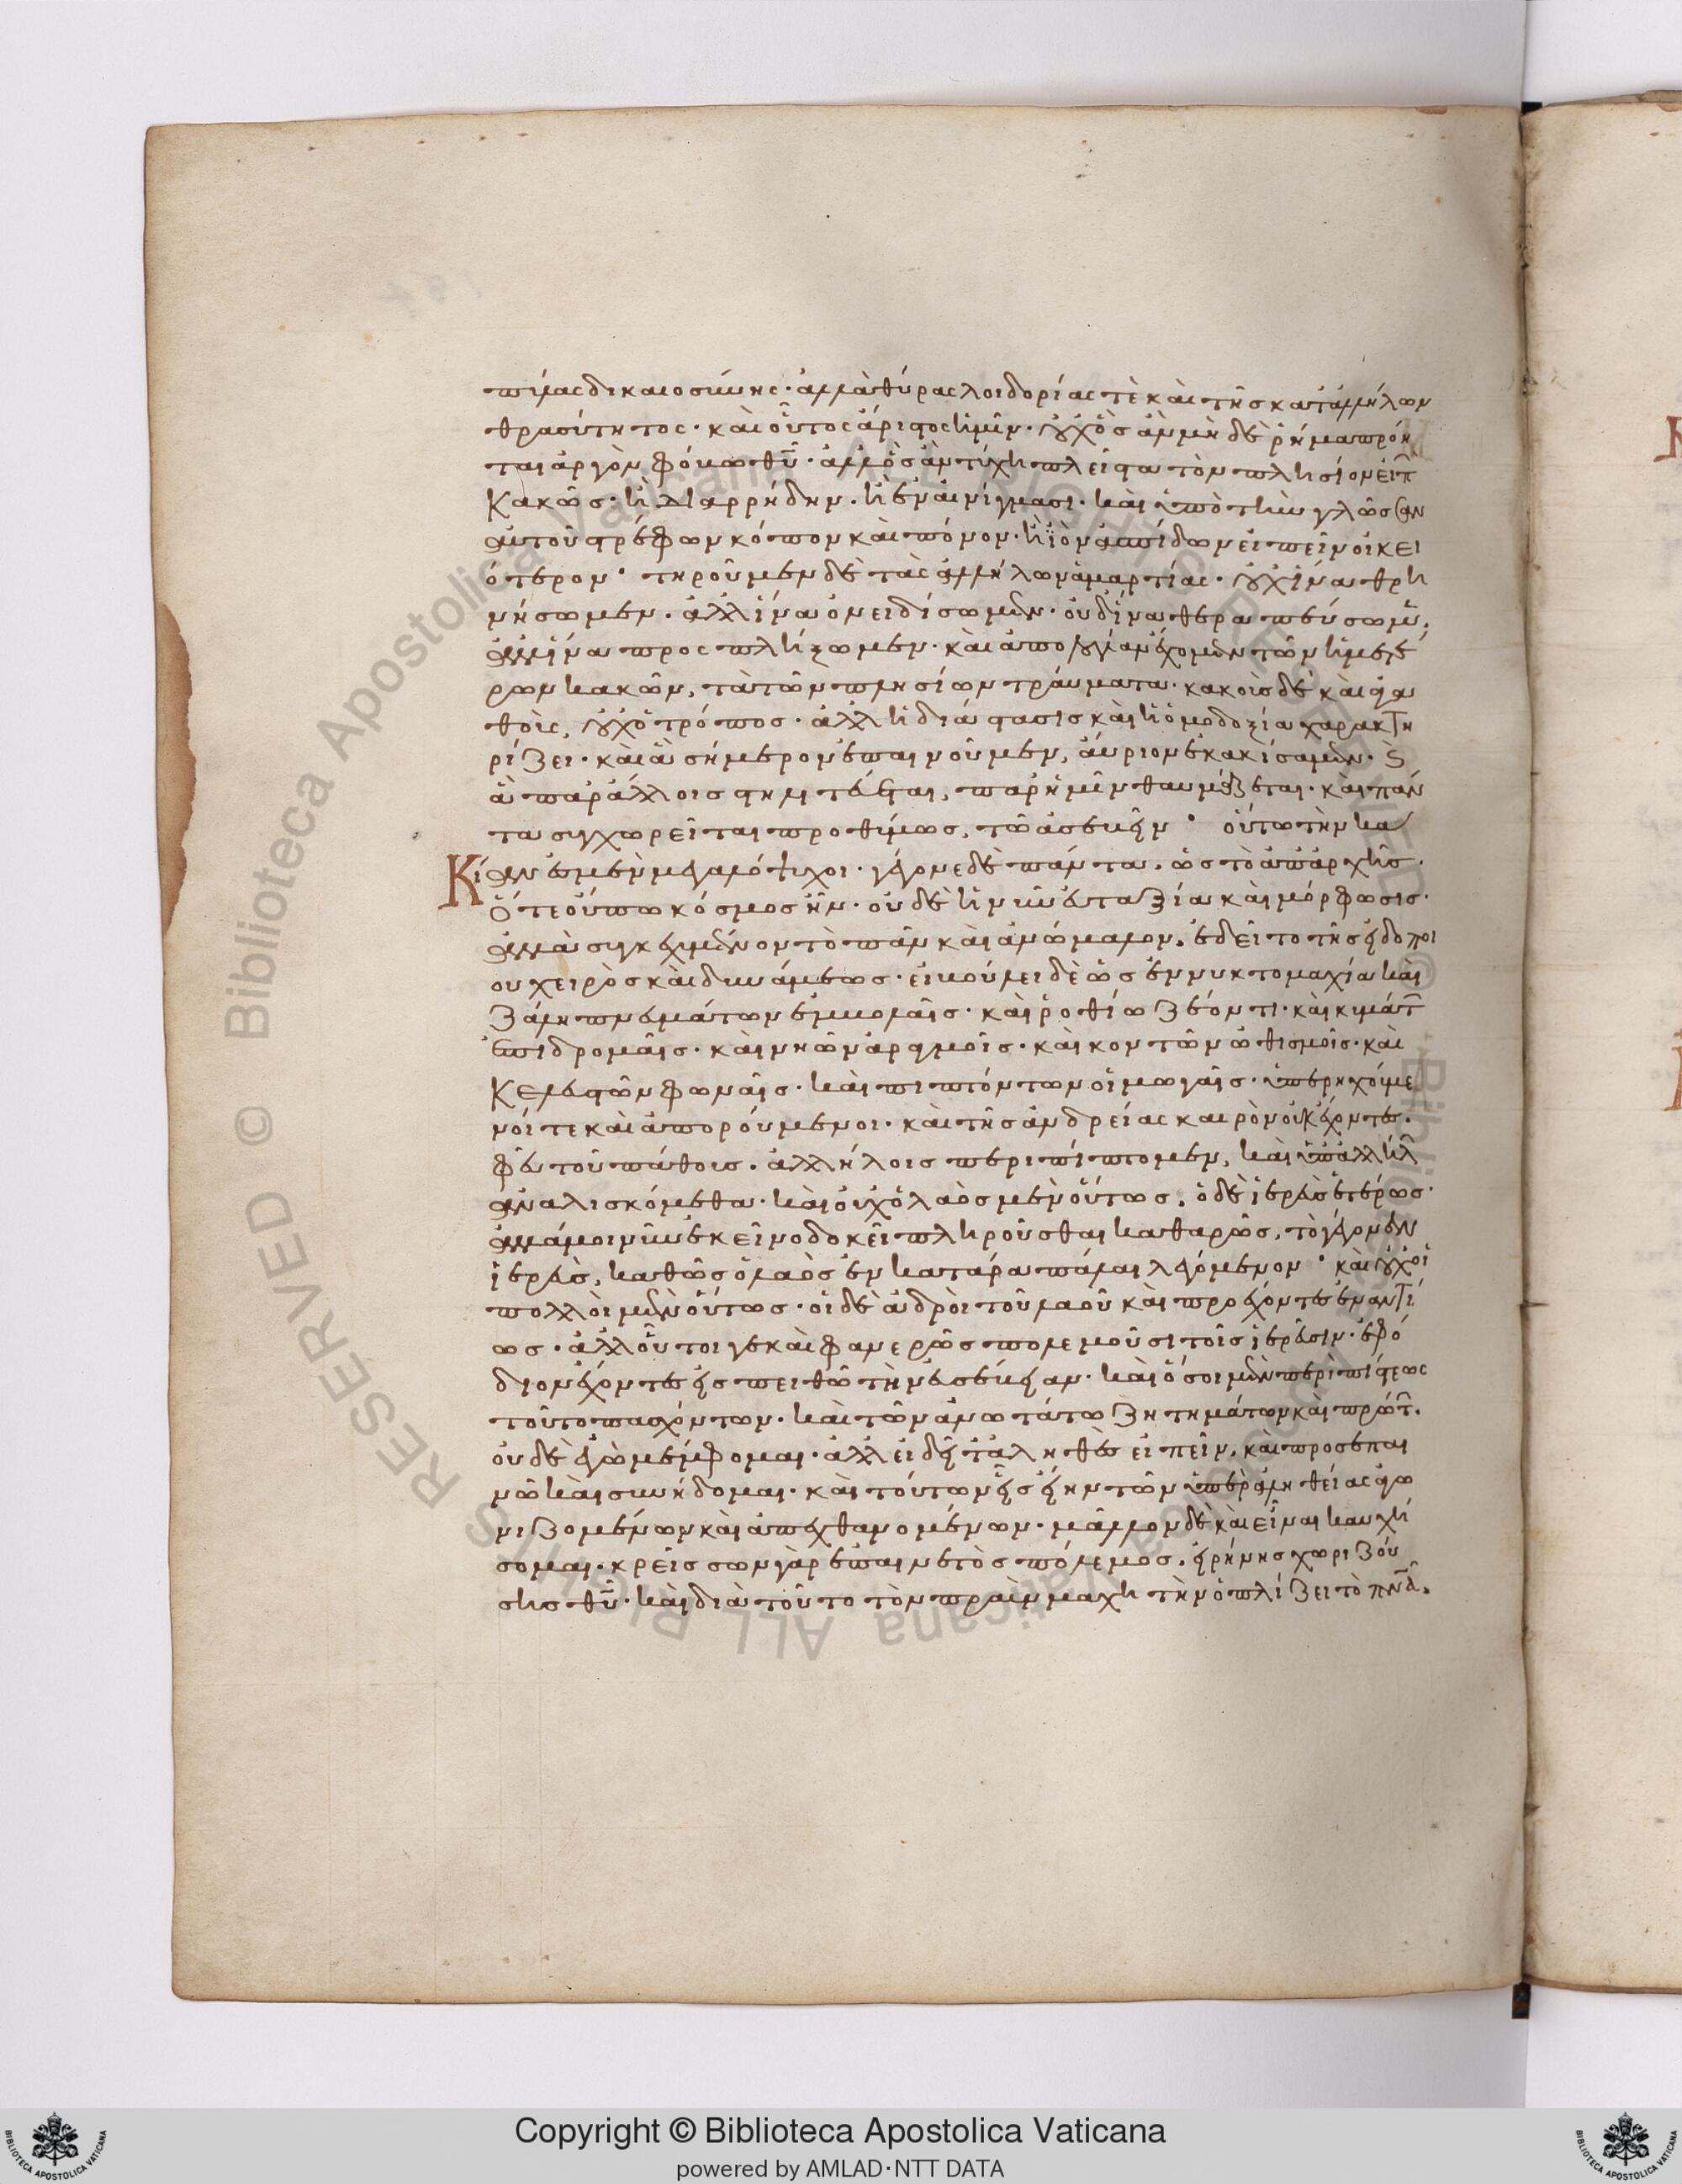 πύλας δικαιοσύνης· ἀλλὰ θύρας λοιδορίας τὲ καὶ τῆς κατἀλλήλων
θρασύτητος· καὶ οὗτος ἄριστος ἡμῖν· οὐχ ὃς ἂν μὴ δὲ ῥῆμα πρόη
ται ἀργὸν φόβω θῦ· ἀλλ ὃς ἂν τύχη πλεῖστα τὸν πλησίον εἰπ
Κακῶς· ἢ διαρρήδην· ἢ ἐν αἰνίγμασι· καὶ ὑπὸ τὴν γλῶσσαν
αὐτοῦ στρέφων κόπον καὶ πόνον· ἢ ἰὸν ἀσπίδων εἰπεῖν οἰκει
ότερον· τηροῦμεν δὲ τὰς ἀλλήλων ἁμαρτίας· οὐχ ἵνα θρη
νήσωμεν· ἀλλ ἵνα ὀνειδίσωμεν· οὐδ ἵνα θεραπεύσωμ·
ἀλλ ἵνα προσπλήξωμεν· καὶ ἀπολογίαν ἔχομεν τῶν ἡμετέ
ρων κακῶν, τὰ τῶν πλησίων τραύματα· κακοὺς δὲ καὶ ἀγα
θοὺς, οὐχ ὁ τρόπος· ἀλλ ἡ διάστασις καὶ ἡ ὁμοδοξία χαρακτη
ρίζει· καὶ ἃ σήμερον ἐπαινοῦμεν, αὔριον ἐκακίσαμεν· καὶ
ἃ παρ ἄλλοις στηλιτεύεται, παρ ἡμῖν θαυμάζεται· καὶ πάν
τα συγχωρεῖται προθύμως, τῶ ἀσεβεῖν· οὕτω τὴν κα
Κίαν ἐσμὲν μεγαλόψυχοι· γέγονε δὲ πάντα, ὡς τὸ ἀπ ἀρχῆς·
ὅτε οὔπω κόσμος ἦν· οὐδὲ ἡ νῦν εὐταξία καὶ μόρφωσις·
ἀλλὰ συγκεχυμένον τὸ πᾶν καὶ ἀνώμαλον, ἐδεῖτο τῆς εἰδοποι
οῦ χειρὸς καὶ δυνάμεως· εἰ βούλει δὲ ὡς ἐν νυκτομαχία καὶ
ζάλη πνευμάτων ἐμβολαῖς· καὶ ῥοθίω ζέοντι· καὶ κυμάτ
ἐπιδρομαῖς· καὶ νηῶν ἀραγμοῖς· καὶ κοντῶν ὠθισμοῖς· καὶ
Κελευστῶν φωναῖς· καὶ πιπτόντων οἰμωγαῖς· ὑπερηχούμε
νοί τε καὶ ἀπορούμενοι· καὶ τῆς ἀνδρείας καιρὸν οὐκ ἔχοντες·
φεῦ τοῦ πάθους· ἀλλήλοις περιπίπτομεν, καὶ ὑπ ἀλλήλ
ἀναλισκόμεθα· καὶ οὐχ ὁ λαὸς μὲν οὕτως, ὁ δὲ ἱερεὺς ἑτέρως·
ἀλλά μοι νῦν ἐκεῖνο δοκεῖ πληροῦσθαι καθαρῶς, τὸ γέγονεν
ἱερεὺς, καθὼς ὁ λαὸς ἐν κατάρα πάλαι λεγόμενον· καὶ οὐχ οἱ
πολλοὶ μὲν οὕτως· οἱ δὲ ἁδροὶ τοῦ λαοῦ καὶ προέχοντες ἐναντί
ως· ἀλλ οὗτοι γε καὶ φανερῶς πολεμοῦσι τοῖς ἱερεῦσιν· ἐφό
διον ἔχοντες εἰς πειθὼ τὴν εὐσέβειαν· καὶ ὅσοι μὲν περὶ πίστεως
τοῦτο πασχόντων· καὶ τῶν ἀνωτάτω ζητημάτων καὶ πρώτ·
οὐδὲ ἐγὼ μέμφομαι· ἀλλ εἰ δεῖ τἀληθὲς εἰπεῖν, καὶ προσεπαι
νῶ καὶ συνήδομαι· καὶ τούτων εἷς εἴην τῶν ὑπὲρ ἀληθείας ἀγω
νιζομένων καὶ ἀπεχθανομένων· μᾶλλον δὲ καὶ εἶναι καυχή
σομαι· κρείσσων γὰρ ἐπαινετὸς πόλεμος, εἰρήνης χωριζού
σης θῦ· καὶ διὰ τοῦτο τὸν πραῢν μαχητὴν ὁπλίζει τὸ πνα·
© Biblioteca Apostolica Vaticana ALL RIGHTS RESERVED
Copyright © Biblioteca Apostolica Vaticana
powered by AMLAD·NTT DATA
BIBLIOTECA APOSTOLICA VATICANA
BIBLIOTECA APOSTOLICA VATICANA